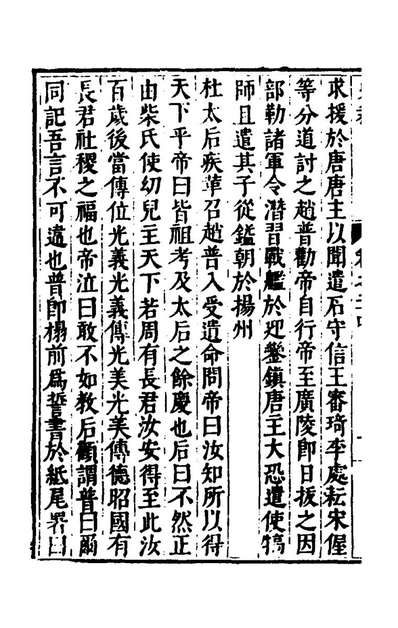 求援於唐唐主以聞遣石守信王審琦李處耘宋偓
等分道討之趙普勸帝自行帝至廣陵即日拔之因
部勒諸軍令潛習戰艦於迎鑾鎮唐主大恐遣使犒
師且遣其子從鎰朝於揚州
杜太后疾革召趙普入受遺命問帝曰汝知所以得
天下乎帝曰皆祖考及太后之餘慶也后曰不然正
由柴氏使幼兒主天下若周有長君汝安得至此汝
百歲後當傳位光義光義傳光美光美傳德昭國有
長君社稷之福也帝泣曰敢不如教后顧謂普曰爾
同記吾言不可違也普即榻前為誓書於紙尾署曰